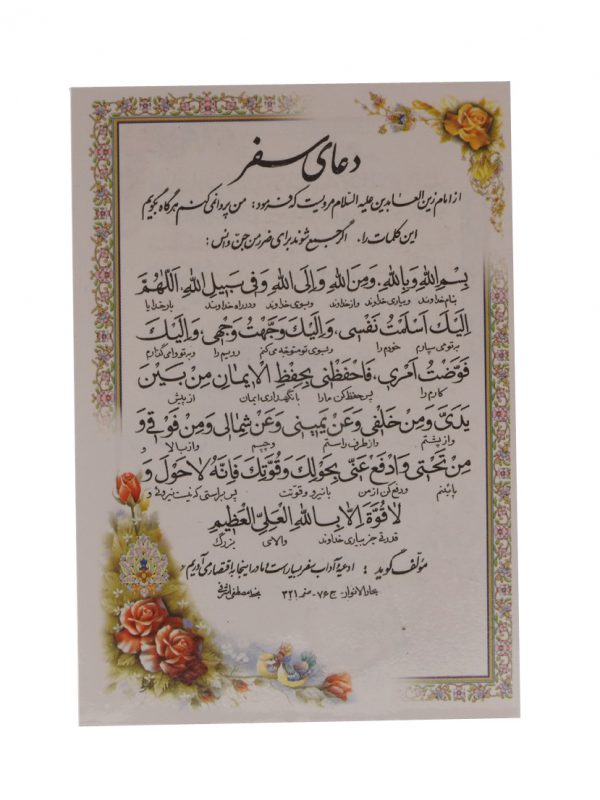 دعای سفر
از امام زین العابدین علیه السلام مرویست که فرمود: من پروا نمی کنم هرگاه بگویم
این کلمات را، اگر جمع شوند برای ضرر من جن و انس:
بِسْمِ اللهِ وَبِاللهِ، وَمِنَ اللهِ وَاِلَی اللهِ وَفی سَبیلِ اللهِ، اَللّهُمَّ
بنام خداوند و بیاری خداوند و از خداوند و بسوی خداوند و در راه خداوند بار خدایا
اِلَیْکَ اَسْلَمْتُ نَفْسی، وَاِلَیْکَ وَجَّهْتُ وَجْهی، وَاِلَیْکَ
به تو می سپارم خودم را و بسوی تو متوجه می کنم رویم را و به تو وامی گذارم
فَوَّضْتُ اَمْری، فَاحْفَظْنی بِحِفْظِ الْایمانِ مِنْ بَیْنَ
کارم را پس حفظ کن ما را با نگهداری ایمان از پیش
یَدَیَّ وَمِنْ خَلْفی وَعَنْ یَمینی وَعَنْ شِمالی وَمِنْ فَوْقی وَ
و از پشتم و از طرف راستم و چپم و از بالا و
مِنْ تَحْتی وَادْفَعْ عَنّی بِحَوْلِکَ وَقُوَّتِکَ فَاِنَّهُ لاحَوْلَ وَ
پائینم و دفع کن از من با نیرو و قوتت پس براستی که نیست نیروئی و
لاقُوَّةَ اِلّا بِاللهِ الْعَلِیِّ الْعَظیمِ
قدرة جز بیاری خداوند والای بزرگ
مؤلف گوید: ادعیۀ آداب سفر بسیار است اما در اینجا باقتصار می آوریم
بحار الانوار - ج ۷۶ - صفحه ۳۲۱